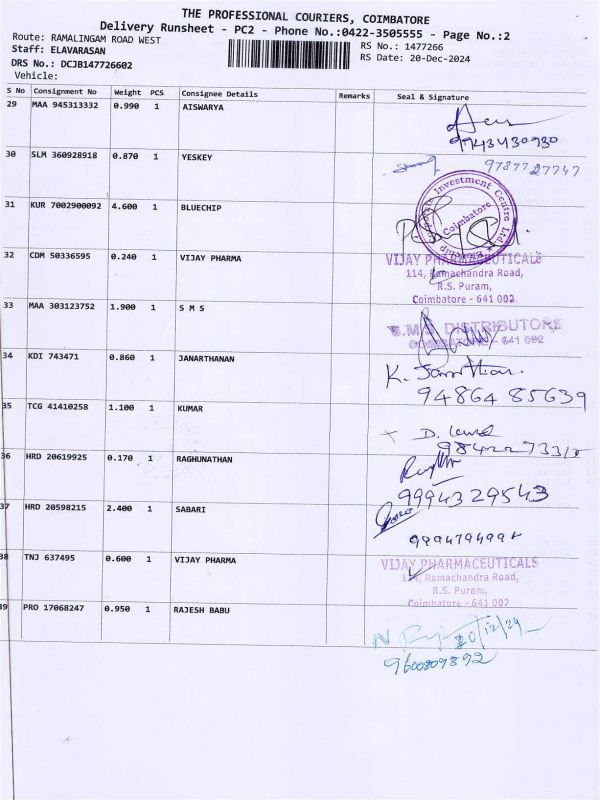 THE PROFESSIONAL COURIERS, COIMBATORE
Delivery Runsheet - PC2 - Phone No.:0422-3505555 - Page No.:2
Route: RAMALINGAM ROAD WEST
RS No.: 1477266
Staff: ELAVARASAN
RS Date: 20-Dec-2024
DRS No.: DCJB147726602
Vehicle:
S No Consignment No Weight PCS Consignee Details Remarks Seal & Signature
29 MAA 945313332 0.990 1 AISWARYA
9943430980
30 SLM 360928918 0.870 1 YESKEY
9787727747
31 KUR 7002900092 4.600 1 BLUECHIP
Investment Centre Coimbatore
32 CDM 50336595 0.240 1 VIJAY PHARMA
VIJAY PHARMACEUTICALS
114, Ramachandra Road,
R.S. Puram,
Coimbatore - 641 002
33 MAA 303123752 1.900 1 S M S
S.M.S DISTRIBUTORS
COIMBATORE - 641 002
34 KDI 743471 0.860 1 JANARTHANAN
K.
94864 85639
35 TCG 41410258 1.100 1 KUMAR
D.
36 HRD 20619925 0.170 1 RAGHUNATHAN
9994329543
37 HRD 20598215 2.400 1 SABARI
38 TNJ 637495 0.600 1 VIJAY PHARMA
VIJAY PHARMACEUTICALS
114, Ramachandra Road,
R.S. Puram,
Coimbatore - 641 002
39 PRO 17068247 0.950 1 RAJESH BABU
20/12/24
9600809892